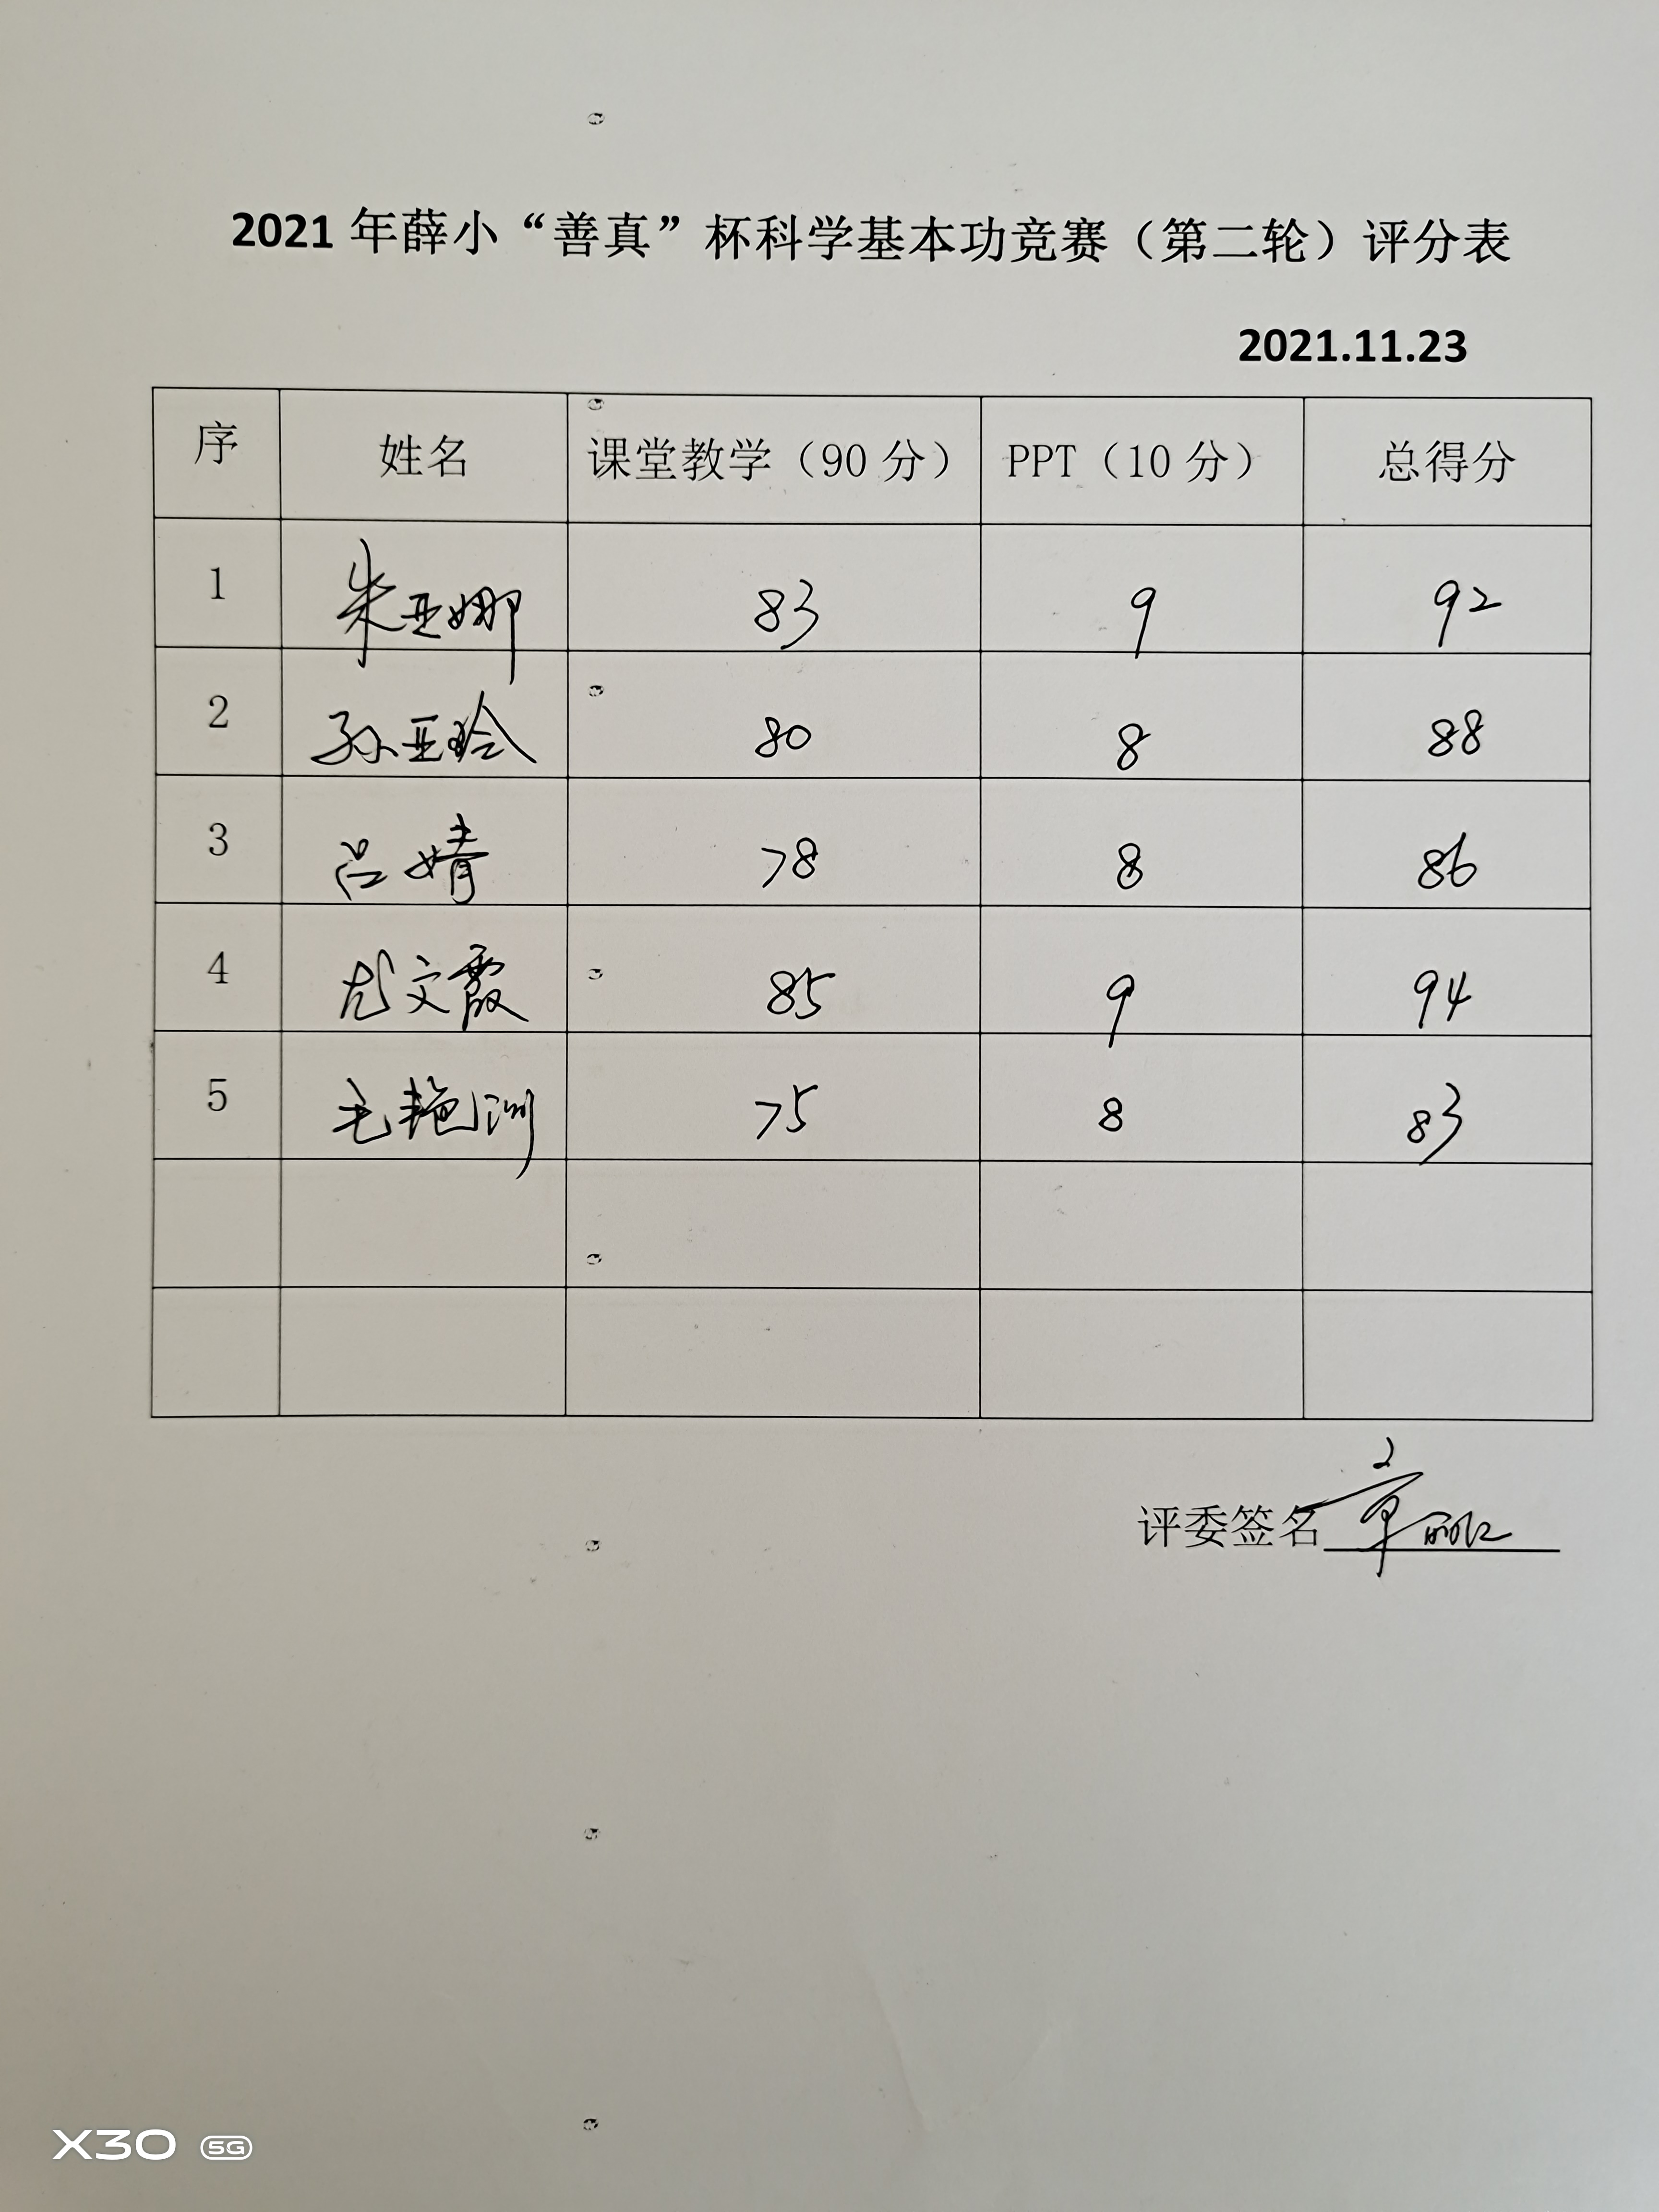 2021 年薛小“善真”杯科学基本功竞赛（第二轮）评分表
2021.11.23
序 姓名 课堂教学（90 分） PPT（10 分） 总得分
1 朱亚娜 83 9 92
2 孙亚玲 80 8 88
3 吕婧 78 8 86
4 尤文霞 85 9 94
5 毛艳洲 75 8 83
评委签名 章丽
X30 5G